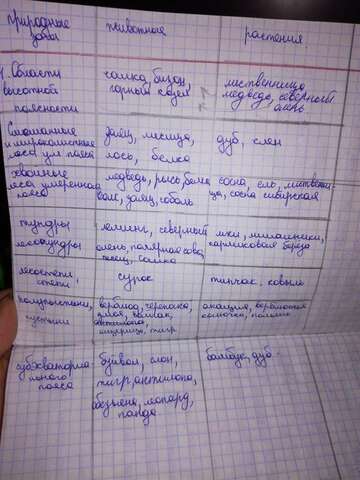 Природные зоны
животные
растения
1. Области высотной поясности
сайка, бизон, горный козел
лиственница
медведь, северный олень
Смешанные и широколиственные леса ум. пояса
заяц, лисица, лось, белка
дуб, клен
хвойные леса умеренного пояса
медведь, рысь, белка
волк, заяц, соболь
сосна, ель, лиственница, сосна сибирская
тундры
лесотундры
лемминг, северный олень, полярная сова, песец
мхи, лишайники, карликовая береза
лесостепи, степи
сурок
типчак, ковыль
полупустыни, пустыни
верблюд, черепаха, змея, антилопа, ящерица, тигр
акация, верблюжья колючка, полынь
субэкваториального пояса
буйвол, слон, тигр, антилопа, обезьяна, леопард, панда
бамбук, дуб